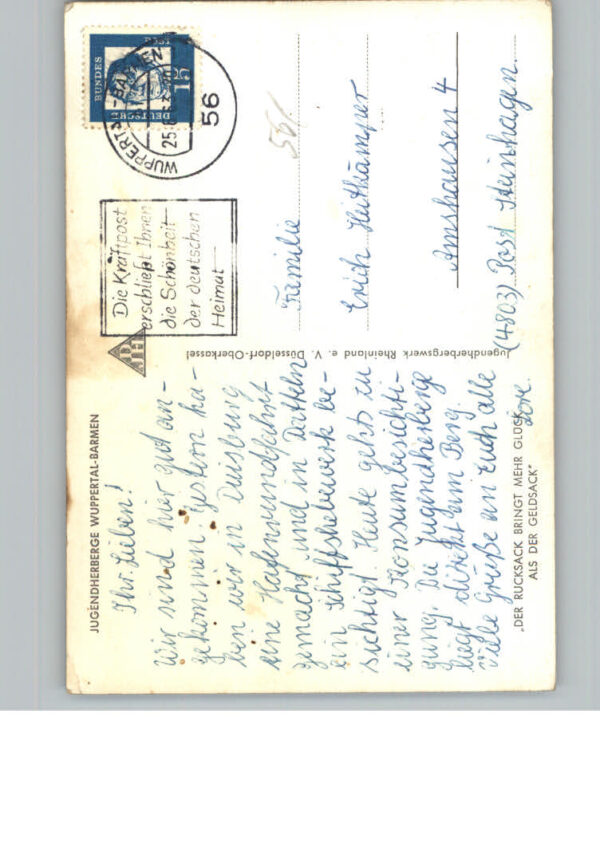 JUGENDHERBERGE WUPPERTAL-BARMEN
Ihr Lieben!
Wir sind hier gut an-
gekommen, gestern ha-
ben wir in Duisburg
eine Hafenrundfahrt
gemacht und in Datteln
ein Schiffshebewerk be-
sichtigt. Heute gehts zu
einer Konsumbesichti-
gung. Die Jugendherberge
liegt direkt am Berg.
Viele Grüße an Euch alle
"DER RUCKSACK BRINGT MEHR GLÜCK
ALS DER GELDSACK"
Jugendherbergswerk Rheinland e. V. Düsseldorf-Oberkassel
Die Kraftpost
erschließt Ihnen
die Schönheit
der deutschen
Heimat
WUPPERTAL-BARMEN
56
DEUTSCHE
BUNDES
15
561
Familie
Erich Heitkämper
Amshausen 4
(4803) Post Steinhagen.